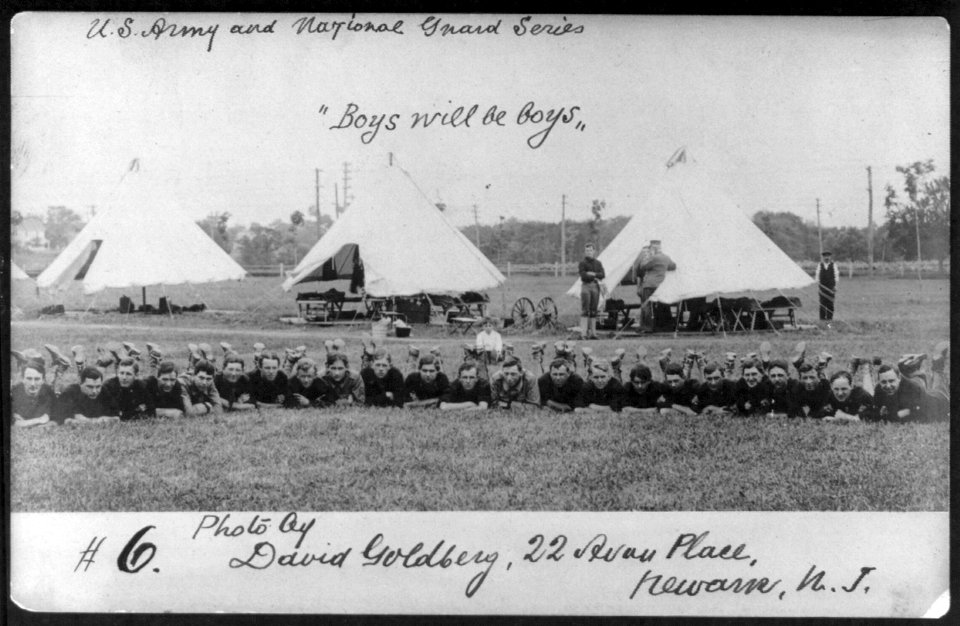 U.S. Army and National Guard Series
"Boys will be boys„
# 6.
Photo By
David Goldberg, 22 Avon Place,
Newark, N. J.